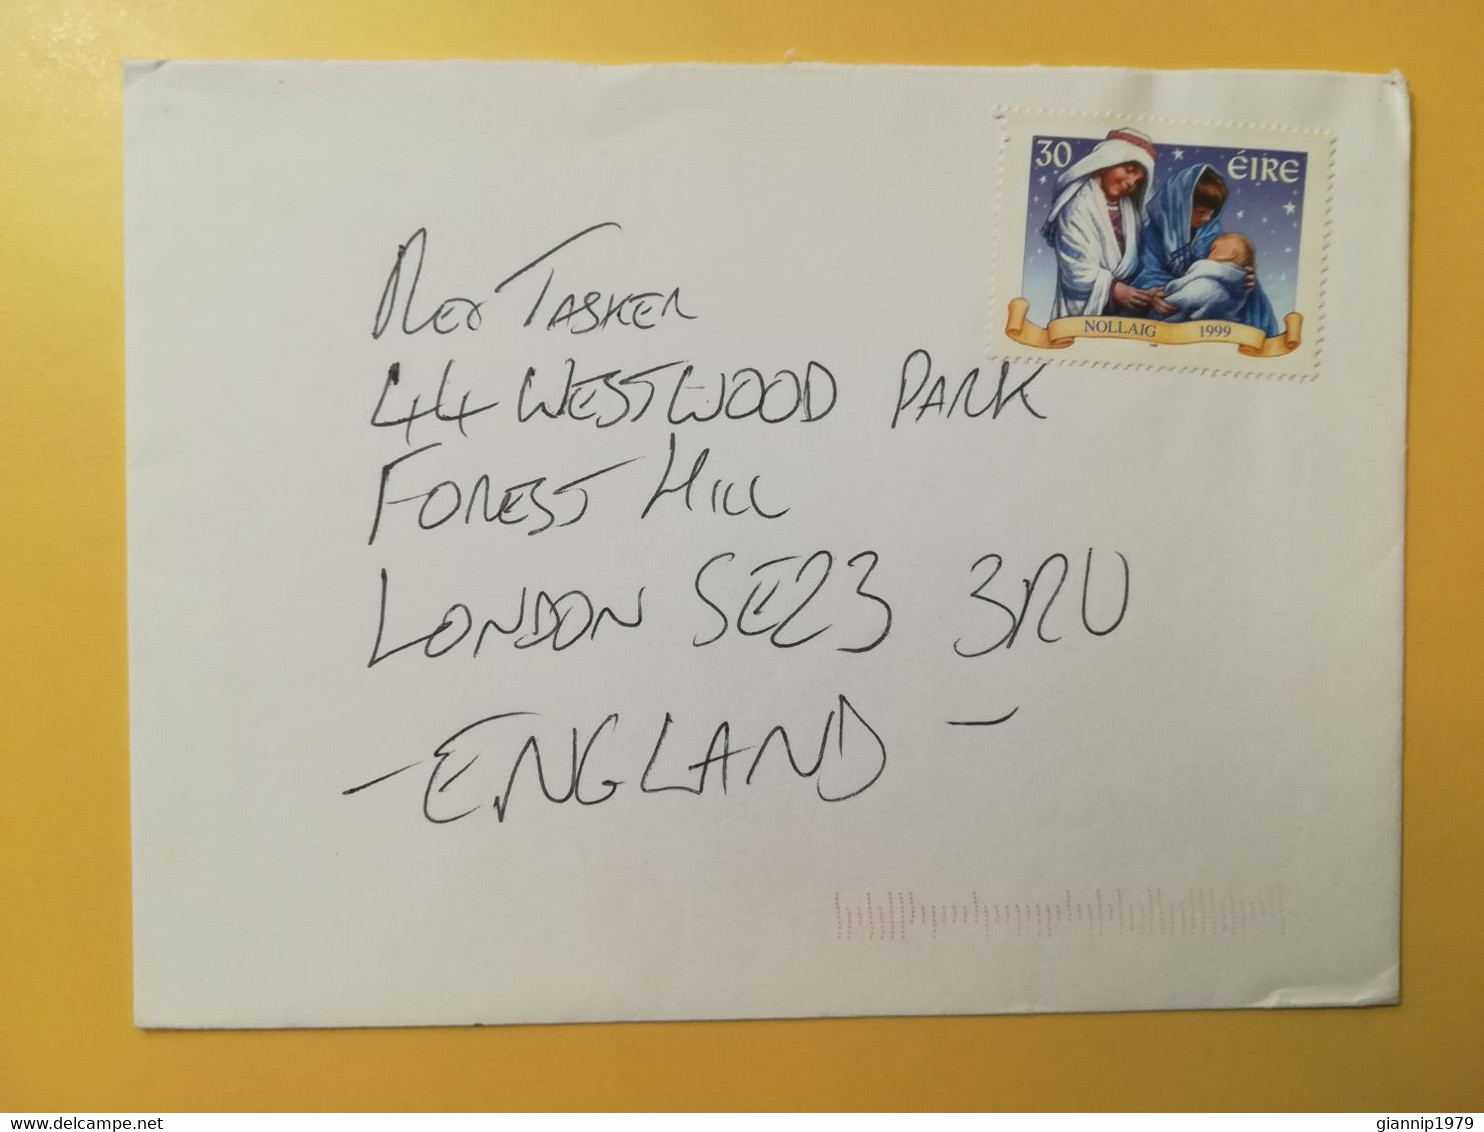 30
ÉIRE
NOLLAIG 1999
Rex Tasker
44 Westwood Park
Forest Hill
London SE23 3RU
- ENGLAND -
delcampe.net
giannip1979